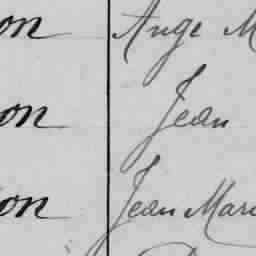 on Ange M
on Jean
on Jean Mari